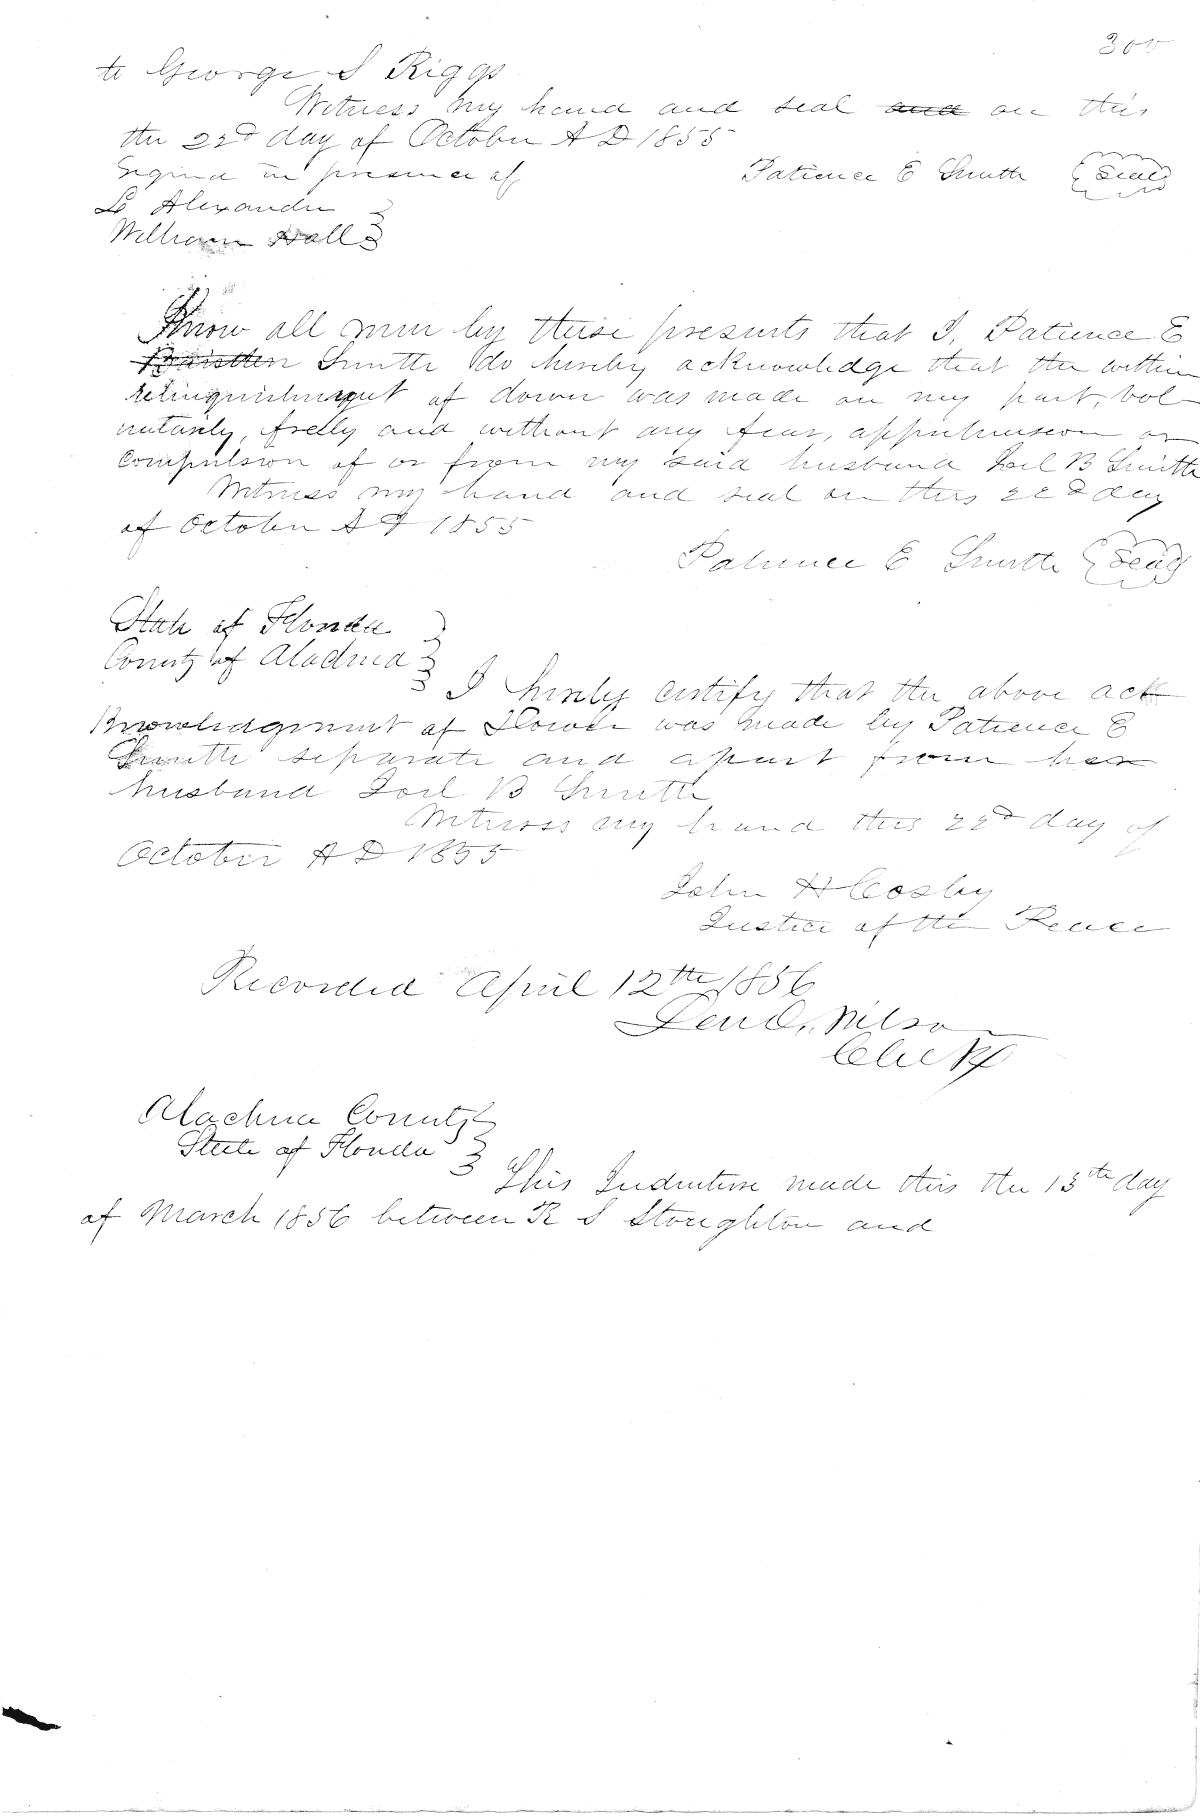 300
to George S Riggs
Witness my hand and seal and on this
the 22d day of October A D 1855
Signed in presence of Patience E Smith (Seal)
L Alexander
William Hall
Know all men by these presents that I, Patience E
Smith do hereby acknowledge that the within
relinquishment of dower was made on my part, vol
untarily, freely and without any fear, apprehension or
compulsion of or from my said husband Joel B Smith
Witness my hand and seal on this 22d day
of October A D 1855
Patience E Smith (Seal)
State of Florida
County of Alachua
I hereby certify that the above ack
knowledgement of Dower was made by Patience E
Smith separate and apart from her
husband Joel B Smith
Witness my hand this 22d day of
October A D 1855
John H Cosby
Justice of the Peace
Recorded April 12th 1856
Wilson
Clerk
Alachua County
State of Florida
This Indenture made this the 13th day
of March 1856 between R S Stoughton and